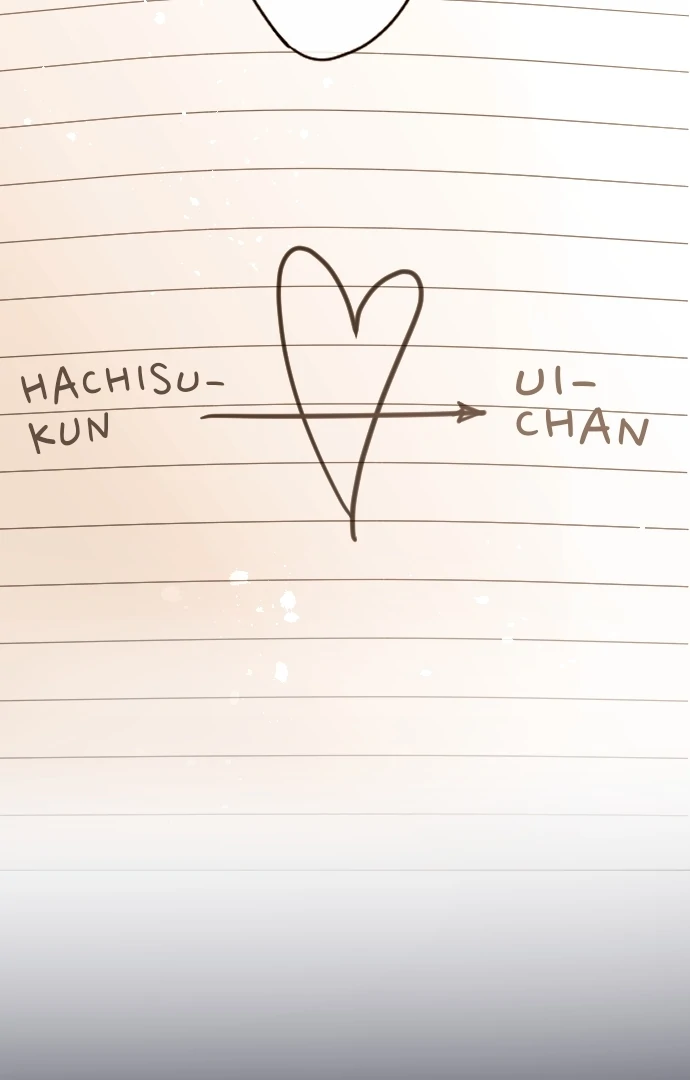 HACHISU-
KUN
UI-
CHAN